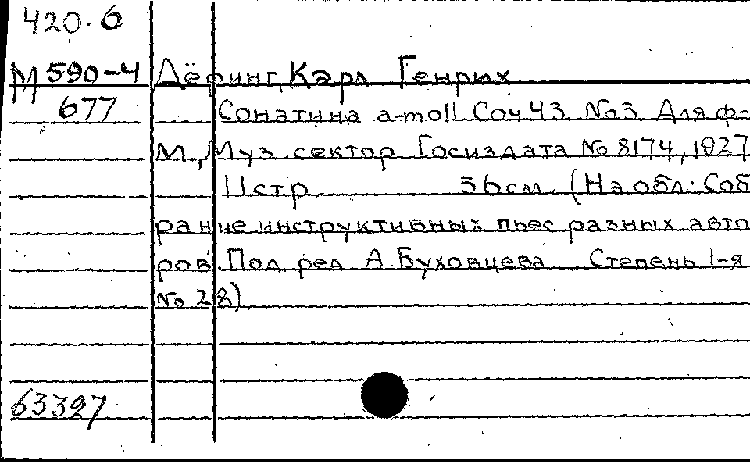 420.6
М 590-4 Дёринг, Карл Генрих
677 Сонатина a-moll Соч 43 No3 Для ф-
М., Муз. сектор Госиздата No 8174, 1927
11 стр 36 см. (На обл: Соб
рание инструктивных пьес разных авто
ров. Под ред А. Буховцева Степень 1-я
No 28)
63327